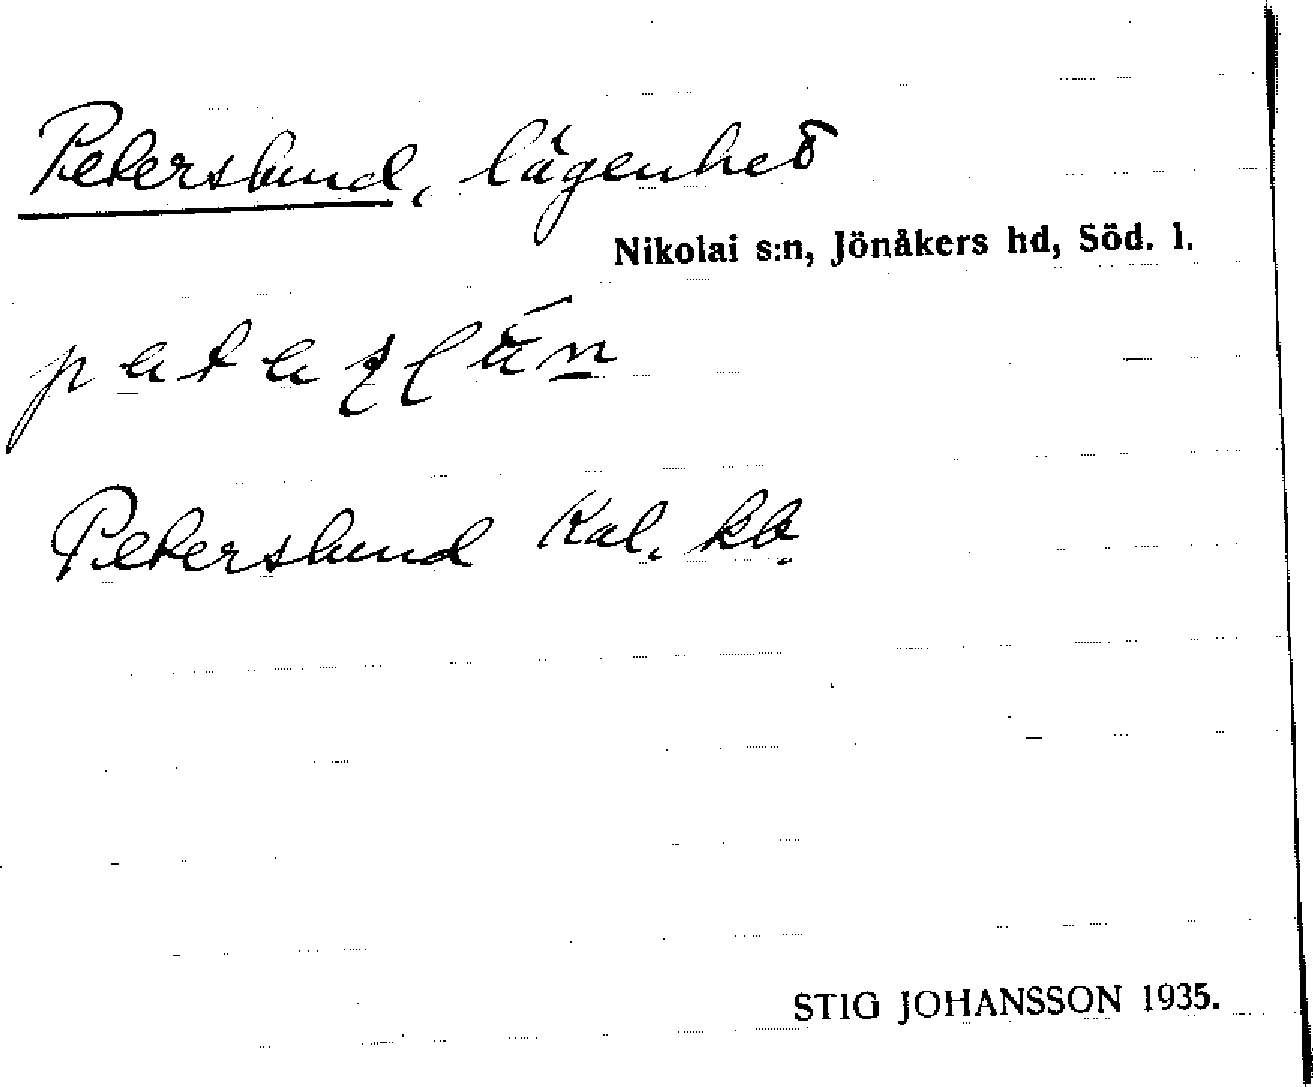 Peterslund, lägenhet
Nikolai s:n, Jönåkers hd, Söd. l.
Peterslund Kal. kb.
STIG JOHANSSON 1935.